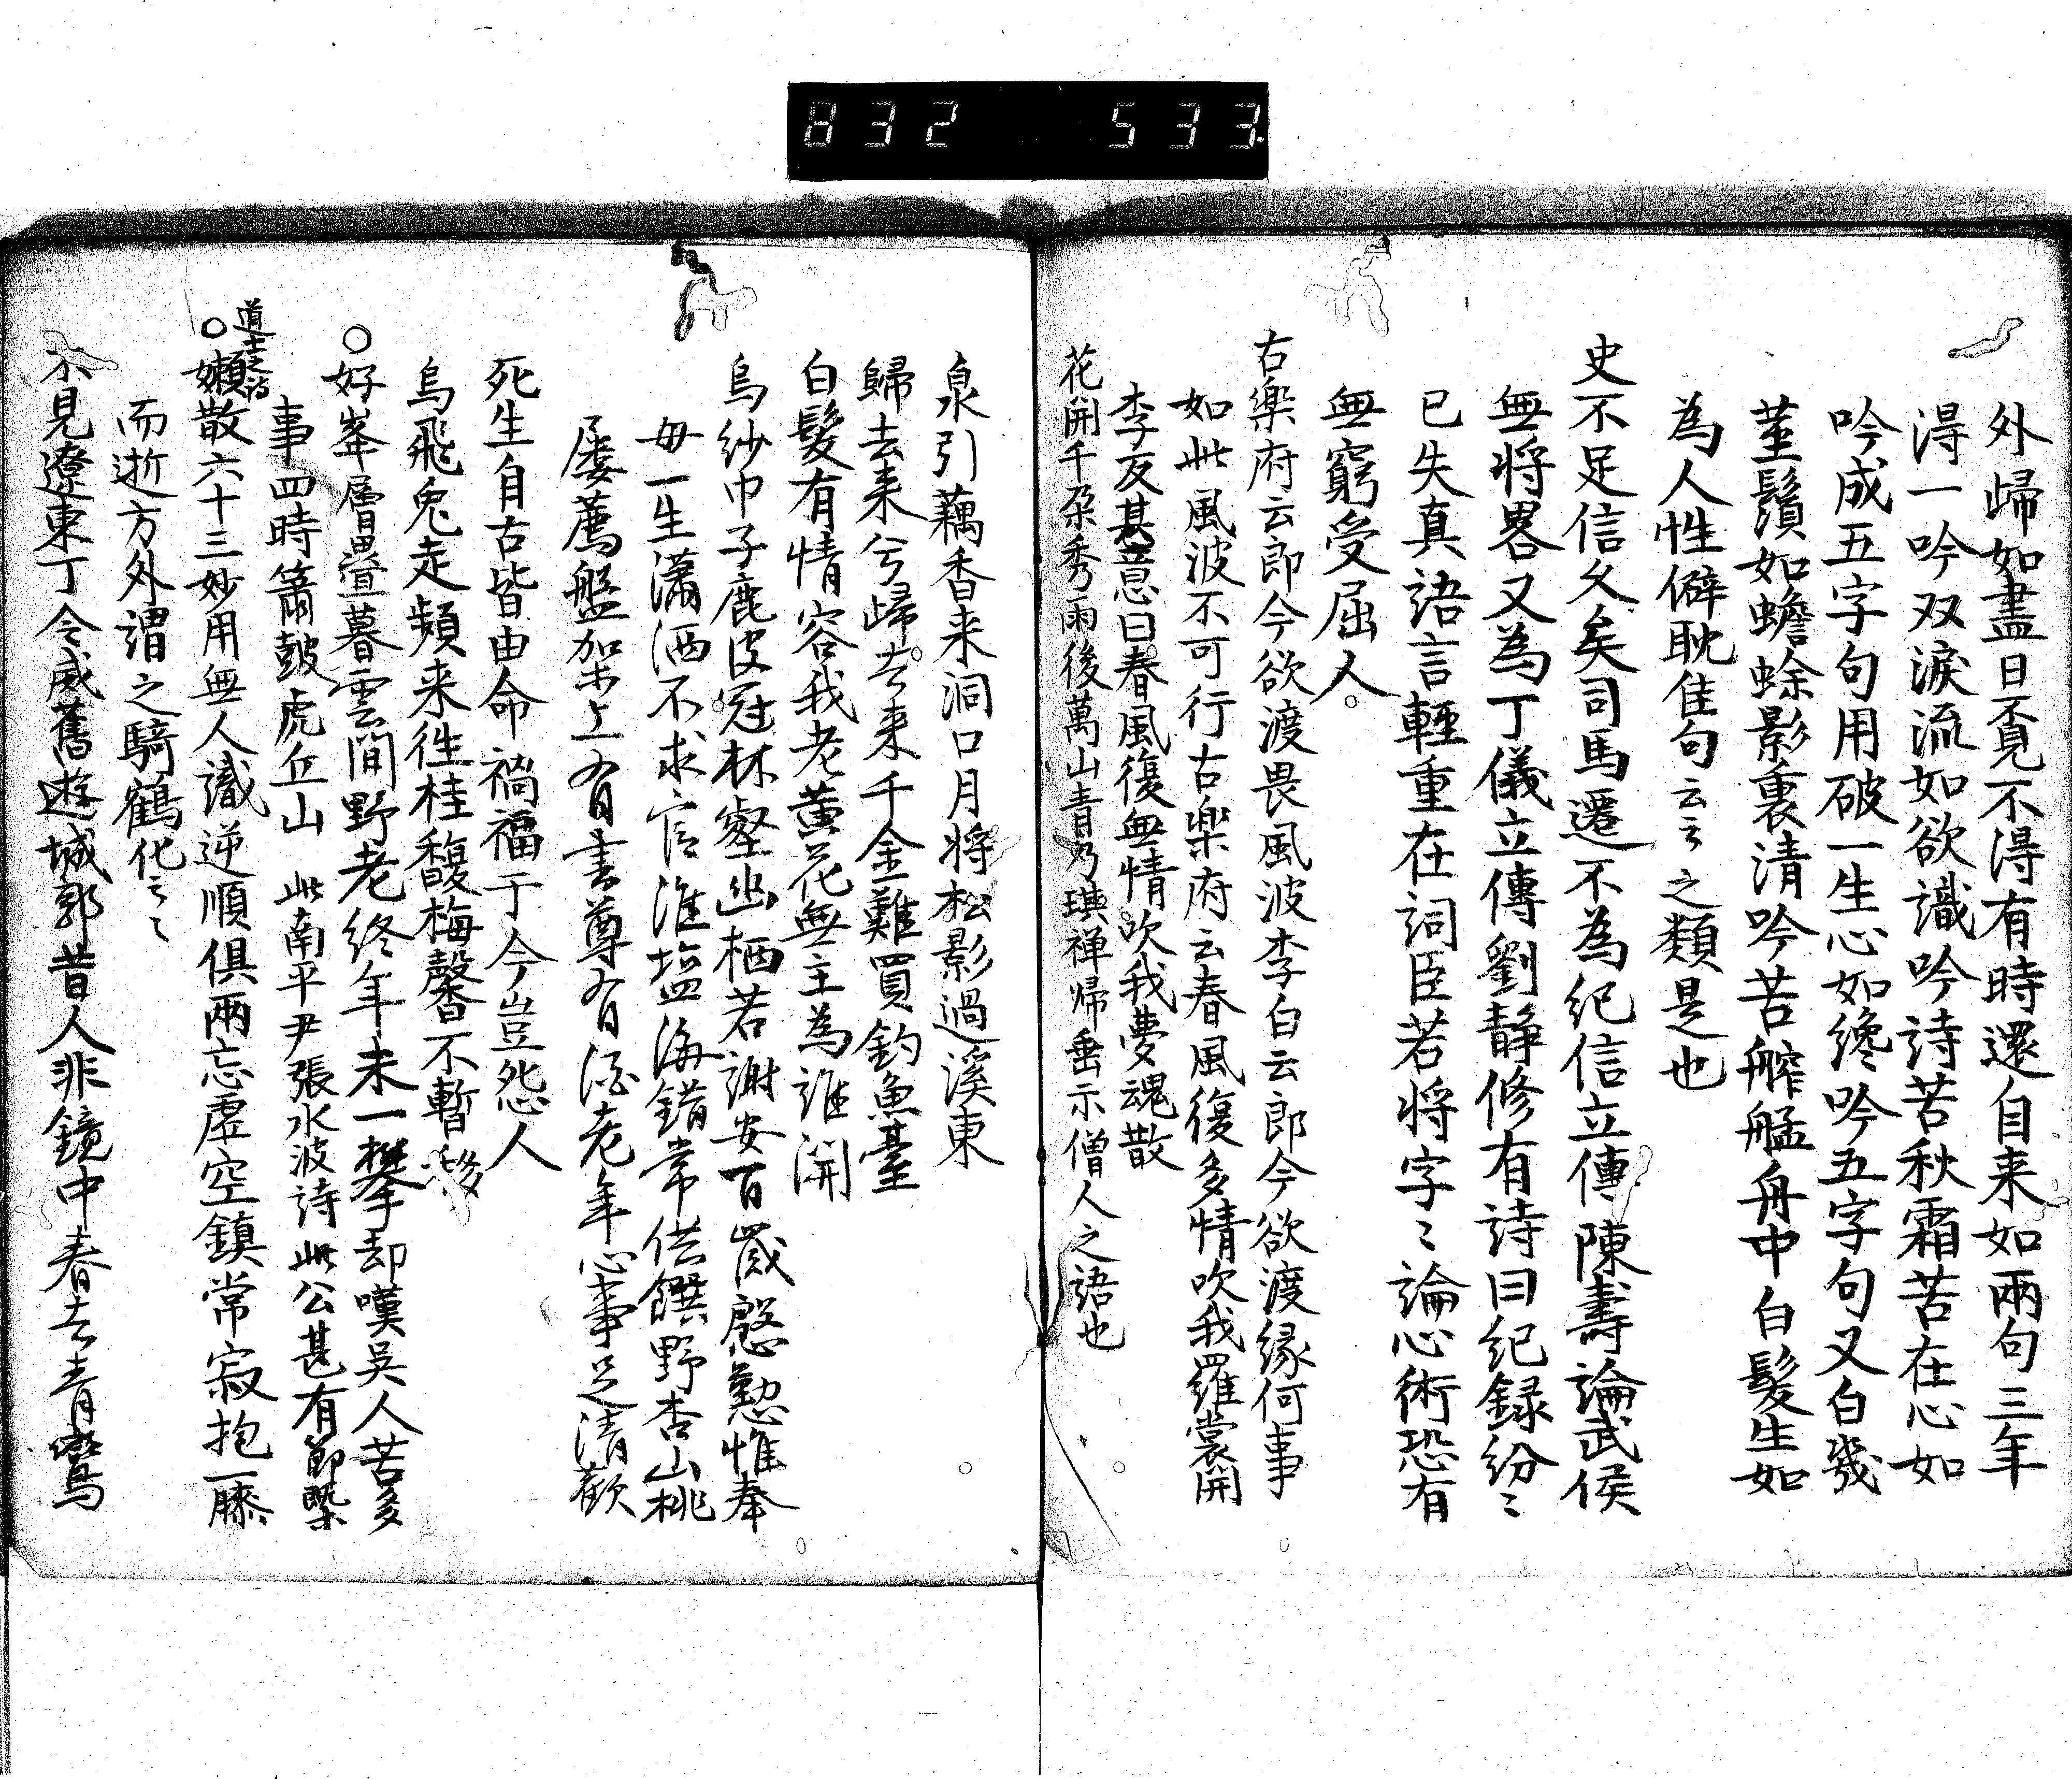 832 533
外歸如盡日覓不得有時還自来如兩句三年
得一吟双淚流如欲識吟詩苦秋霜苦在心如
吟成五字句用破一生心如纔吟五字句又白幾
莖鬚如蟾蜍影裏清吟苦舴艋舟中白髮生如
為人性僻耽佳句云云之類是也
史不足信久矣司馬遷不為紀信立傳陳壽論武侯
無將畧又為丁儀立傳劉静修有詩曰紀録紛〻
已失真語言輕重在詞臣若将字〻論心術恐有
無窮受屈人
古樂府云郎今欲渡畏風波李白云郎今欲渡縁何事
如此風波不可行古楽府云春風復多情吹我羅裳開
李反其意曰春風復無情吹我夢魂散
花開千朶秀雨後萬山青乃琪禅帰垂示僧人之語也
泉引藕香来洞口月将松影過溪東
歸去来兮歸去来千金難買釣魚臺
白髮有情容我老黄花無主為誰開
烏紗巾子鹿皮冠林壑幽栖若謝安百歲慇懃惟奉
母一生瀟洒不求官淮塩海錯常供饌野杏山桃
屡薦盤架上有書尊有酒老年心事足清歡
死生自古皆由命禍福于今豈怨人
烏飛兔走頻来往桂馥梅馨不暫移
○好峯層疊暮雲間野老終年未一攀却嘆吳人苦多
事四時簫皷虎丘山 此南平尹張水波詩此公甚有節槩
道士之詩
○嬾散六十三妙用無人識逆順俱兩忘虛空鎮常寂抱一膝
而逝方外謂之騎鶴化云〻
不見遼東丁令威舊遊城郭昔人非鏡中春去青鸞